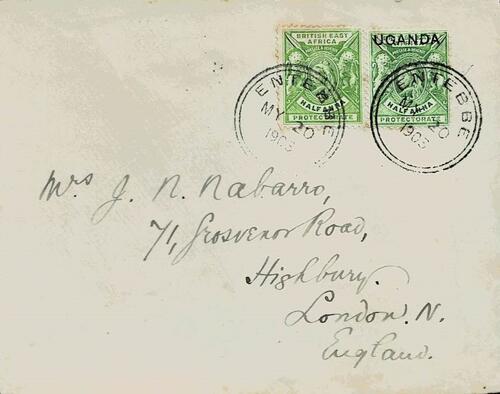 BRITISH EAST
AFRICA
HALF ANNA
PROTECTORATE
UGANDA
HALF ANNA
PROTECTORATE
ENTEBBE
MY 20
1903
ENTEBBE
MY 20
1903
Mrs J. N. Nabarro,
71, Grosvenor Road,
Highbury.
London. N.
England.